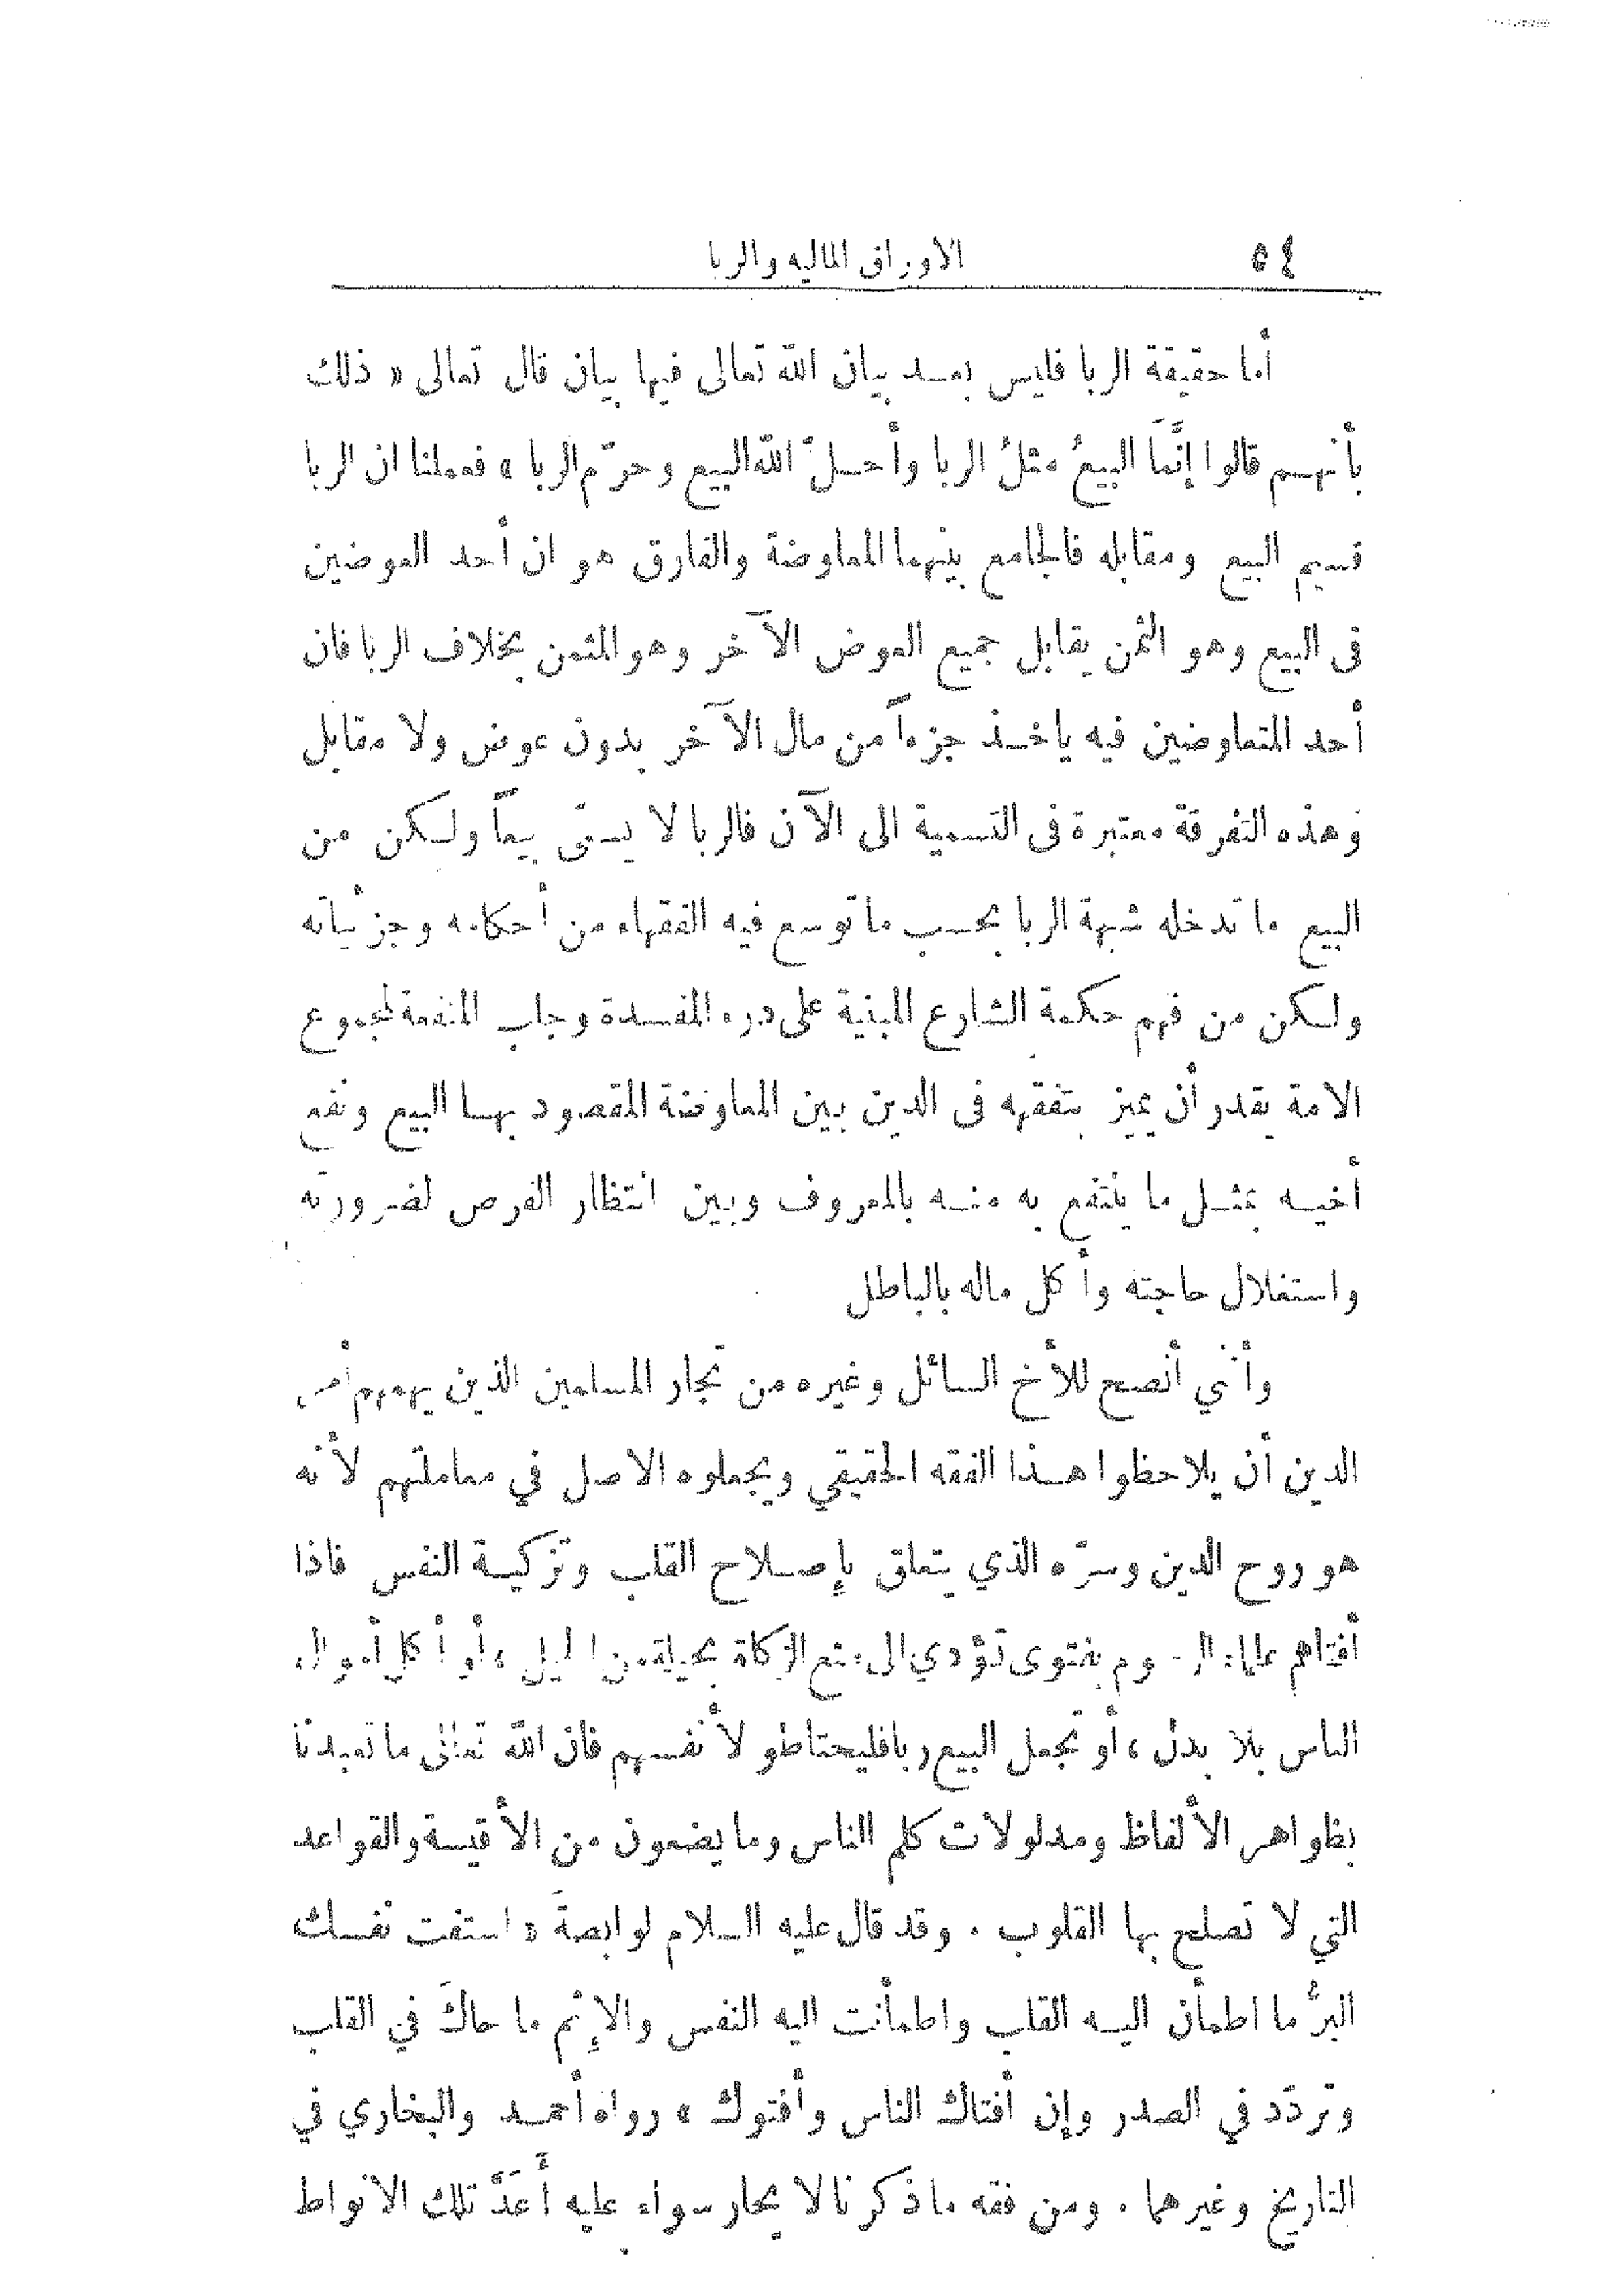 ٥٤ الاوراق الماليه والربا
أما حقيقة الربا فليس بعد بيان الله تعالى فيها بيان قال تعالى « ذلك
بأنهم قالوا إنَّمَا البيعُ مثلُ الربا وأحلّ الله البيع وحرّم الربا » فعملنا ان الربا
قسيم البيع ومقابله فالجامع بينهما المعاوضة والفارق هو ان أحد العوضين
فى البيع وهو الثمن يقابل جميع العوض الآخر وهو المثمن بخلاف الربا فان
أحد المتعاوضين فيه ياخذ جزءاً من مال الآخر بدون عوض ولا مقابل
وهذه التفرقة معتبرة فى التسمية الى الآن فالربا لا يسمّى بيعاً ولكن من
البيع ما تدخله شبهة الربا بحسب ما توسع فيه الفقهاء من أحكامه وجزئياته
ولكن من فهم حكمة الشارع المبنية على درء المفسدة وجلب المنفعة لمجموع
الامة يقدر أن يميز بتفقهه فى الدين بين المعاوضة المقصود بها البيع ونفع
أخيه بمثل ما ينتفع به منه بالمعروف وبين انتظار الفرص لضرورته
واستغلال حاجته وأكل ماله بالباطل
وأنني أنصح للأخ السائل وغيره من تجار المسلمين الذين يهمهم أمر
الدين أن يلاحظوا هذا الفقه الحقيقي ويجعلوه الاصل في معاملتهم لأنه
هو روح الدين وسرّه الذي يتعلق بإصلاح القلب وتزكية النفس فاذا
أفتاهم علماء الرسوم بفتوى تؤدي الى منع الزكاة بحيلة من الحيل ، أو أكل أموال
الناس بلا بدل ، أو تجعل البيع ربا فليحتاطو لأنفسهم فان الله تعالى ما تعبدنا
بظواهر الألفاظ ومدلولات كلم الناس وما يضعون من الأقيسة والقواعد
التي لا تصلح بها القلوب . وقد قال عليه السلام لوابصةَ « استفت نفسك
البرُّ ما اطمأن اليه القلب واطمأنت اليه النفس والإثم ما حاكَ في القلب
وتردّد في الصدر وإن أفتاك الناس وأفتوك » رواه أحمد والبخاري في
التاريخ وغيرهما . ومن فقه ما ذكرنا لا يحار سواء عليه أَعَدَّ تلك الانواط